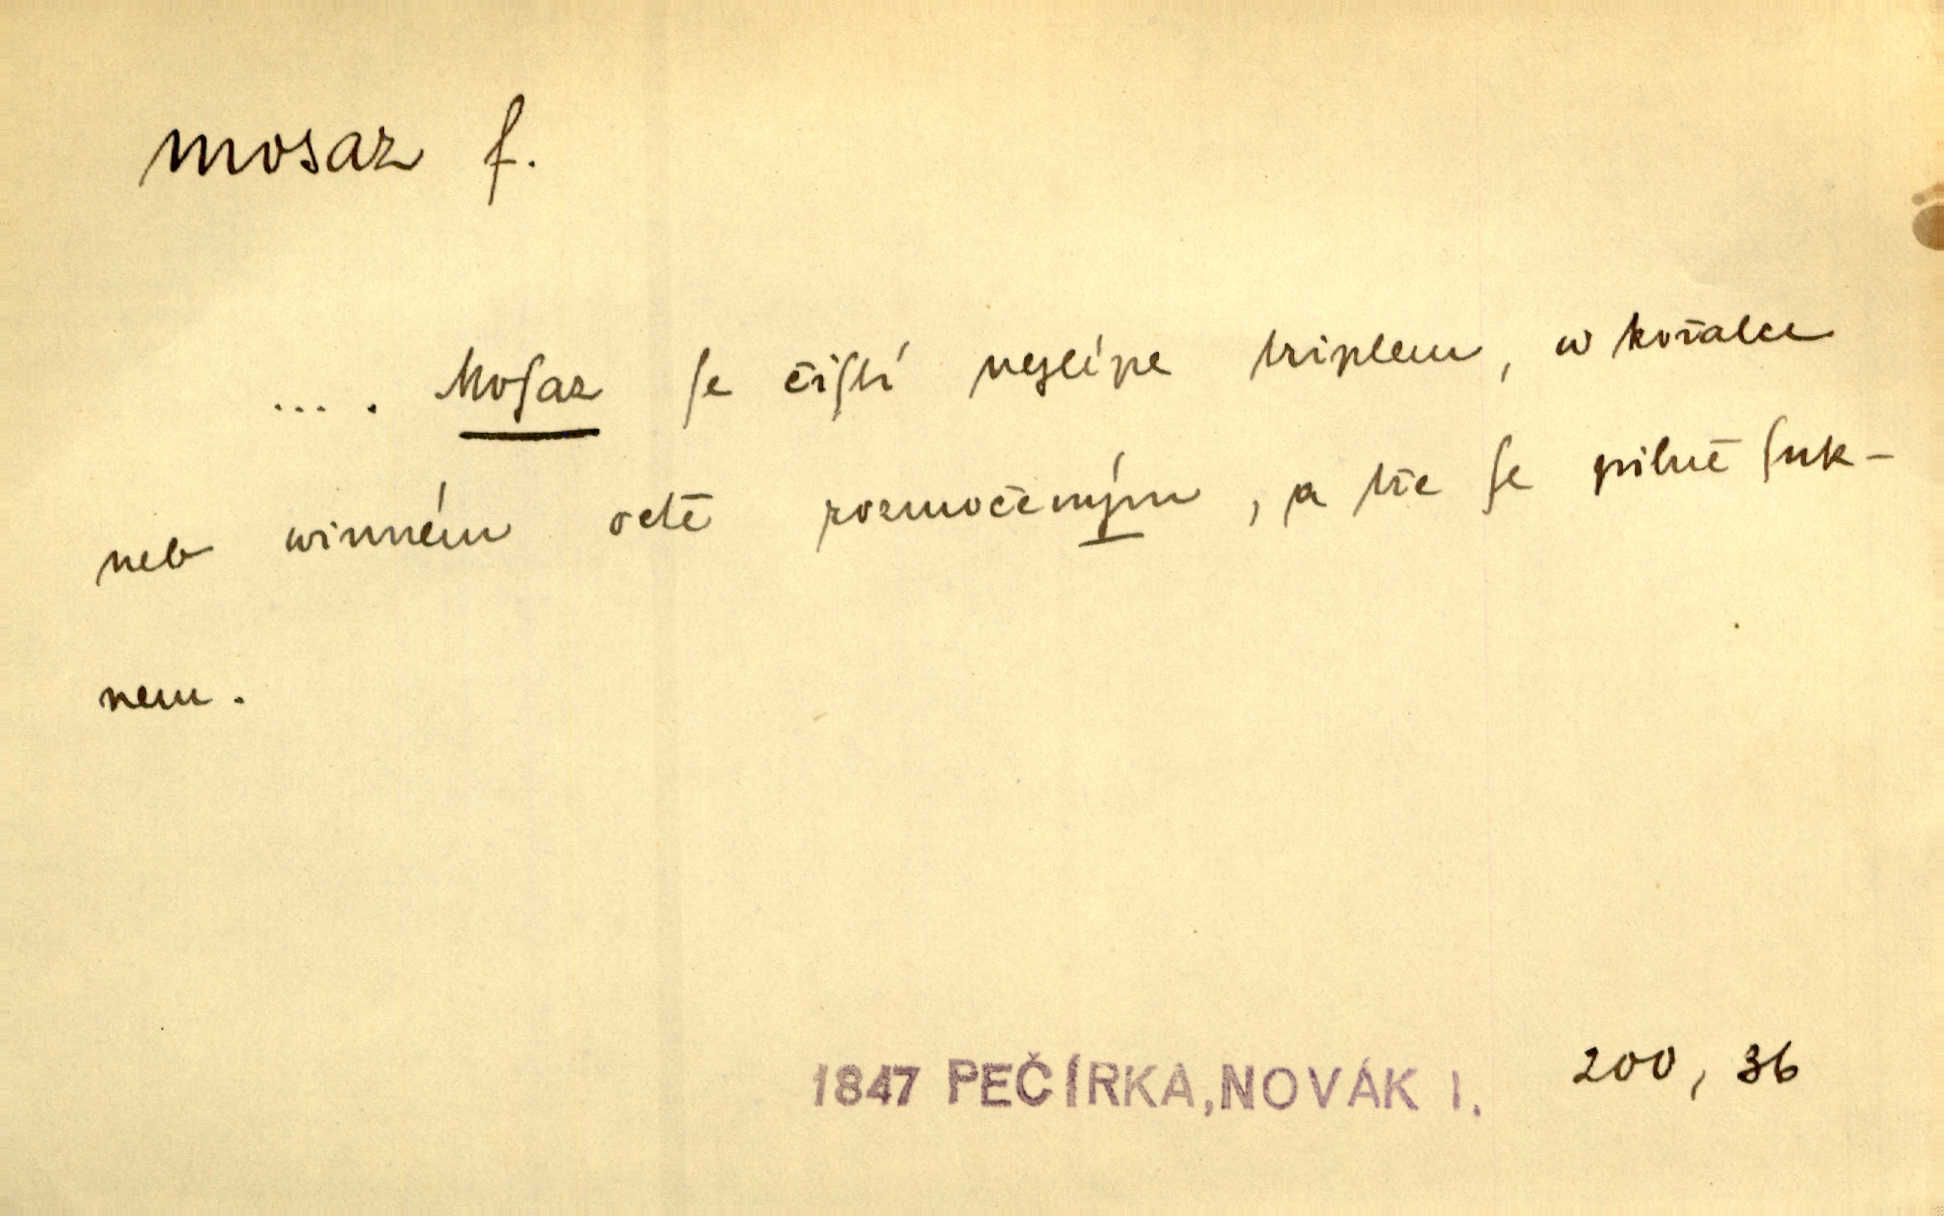 mosaz f.
.... Moſaz ſe čiſtí neglépe triplem, w kořalce
neb winném octě rozmočeným, a tře ſe pilně ſuk-
nem.
1847 PEČÍRKA, NOVÁK I. 200, 36